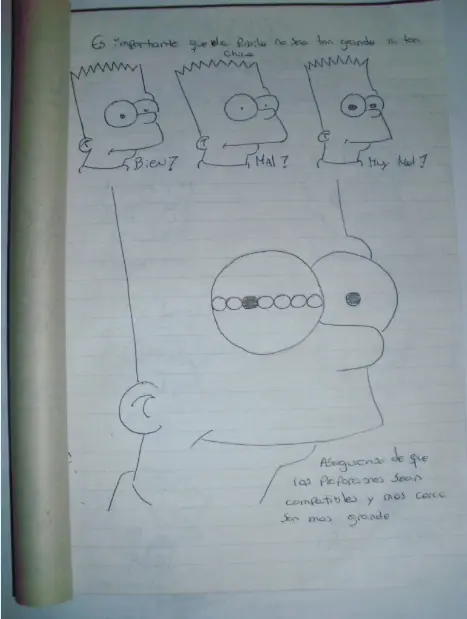 Es importante que la Pupila no sea tan grande ni tan
chica
Bien?
Mal?
Muy Mal?
Asegurense de que
las Proporciones sean
compatibles y mas cerca
son mas grande